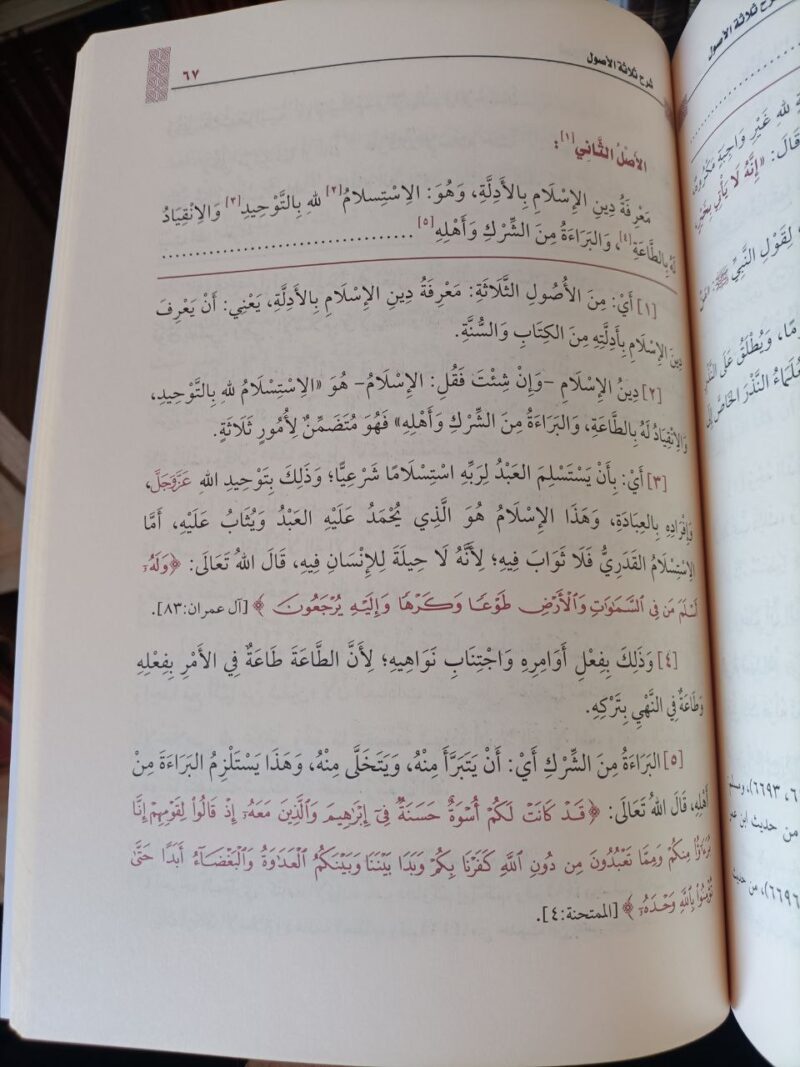 شرح ثلاثة الأصول
٦٧
الأَصْلُ الثَّانِي[١]:
مَعْرِفَةُ دِينِ الإِسْلَامِ بِالأَدِلَّةِ، وَهُوَ: الِاسْتِسلامُ[٢] للهِ بِالتَّوْحِيدِ[٣] وَالِانْقِيَادُ
لَهُ بِالطَّاعَةِ[٤]، وَالبَرَاءَةُ مِنَ الشِّرْكِ وَأَهْلِهِ[٥] ..................................
[١] أَيْ: مِنَ الأُصُولِ الثَّلَاثَةِ: مَعْرِفَةُ دِينِ الإِسْلَامِ بِالأَدِلَّةِ، يَعْنِي: أَنْ يَعْرِفَ
دِينَ الإِسْلَامِ بِأَدِلَّتِهِ مِنَ الكِتَابِ وَالسُّنَّةِ.
[٢] دِينُ الإِسْلَامِ -وَإِنْ شِئْتَ فَقُلِ: الإِسْلَامُ- هُوَ «الِاسْتِسْلَامُ للهِ بِالتَّوْحِيدِ،
وَالِانْقِيَادُ لَهُ بِالطَّاعَةِ، وَالبَرَاءَةُ مِنَ الشِّرْكِ وَأَهْلِهِ» فَهُوَ مُتَضَمِّنٌ لِأُمُورٍ ثَلَاثَةٍ.
[٣] أَيْ: بِأَنْ يَسْتَسْلِمَ العَبْدُ لِرَبِّهِ اسْتِسْلَامًا شَرْعِيًّا؛ وَذَلِكَ بِتَوْحِيدِ اللهِ عَزَّوَجَلَّ،
وَإِفْرَادِهِ بِالعِبَادَةِ، وَهَذَا الإِسْلَامُ هُوَ الَّذِي يُحْمَدُ عَلَيْهِ العَبْدُ وَيُثَابُ عَلَيْهِ، أَمَّا
الِاسْتِسْلَامُ القَدَرِيُّ فَلَا ثَوَابَ فِيهِ؛ لِأَنَّهُ لَا حِيلَةَ لِلإِنْسَانِ فِيهِ، قَالَ اللهُ تَعَالَى: ﴿وَلَهُۥٓ
أَسْلَمَ مَن فِى ٱلسَّمَٰوَٰتِ وَٱلْأَرْضِ طَوْعًا وَكَرْهًا وَإِلَيْهِ يُرْجَعُونَ ﴾ [آل عمران:٨٣].
[٤] وَذَلِكَ بِفِعْلِ أَوَامِرِهِ وَاجْتِنَابِ نَوَاهِيهِ؛ لِأَنَّ الطَّاعَةَ طَاعَةٌ فِي الأَمْرِ بِفِعْلِهِ
وَطَاعَةٌ فِي النَّهْيِ بِتَرْكِهِ.
[٥] البَرَاءَةُ مِنَ الشِّرْكِ أَيْ: أَنْ يَتَبَرَّأَ مِنْهُ، وَيَتَخَلَّى مِنْهُ، وَهَذَا يَسْتَلْزِمُ البَرَاءَةَ مِنْ
أَهْلِهِ، قَالَ اللهُ تَعَالَى: ﴿قَدْ كَانَتْ لَكُمْ أُسْوَةٌ حَسَنَةٌ فِىٓ إِبْرَٰهِيمَ وَٱلَّذِينَ مَعَهُۥٓ إِذْ قَالُوا۟ لِقَوْمِهِمْ إِنَّا
بُرَءَٰٓؤُا۟ مِنكُمْ وَمِمَّا تَعْبُدُونَ مِن دُونِ ٱللَّهِ كَفَرْنَا بِكُمْ وَبَدَا بَيْنَنَا وَبَيْنَكُمُ ٱلْعَدَٰوَةُ وَٱلْبَغْضَآءُ أَبَدًا حَتَّىٰ
تُؤْمِنُوا۟ بِٱللَّهِ وَحْدَهُۥٓ﴾ [الممتحنة:٤].